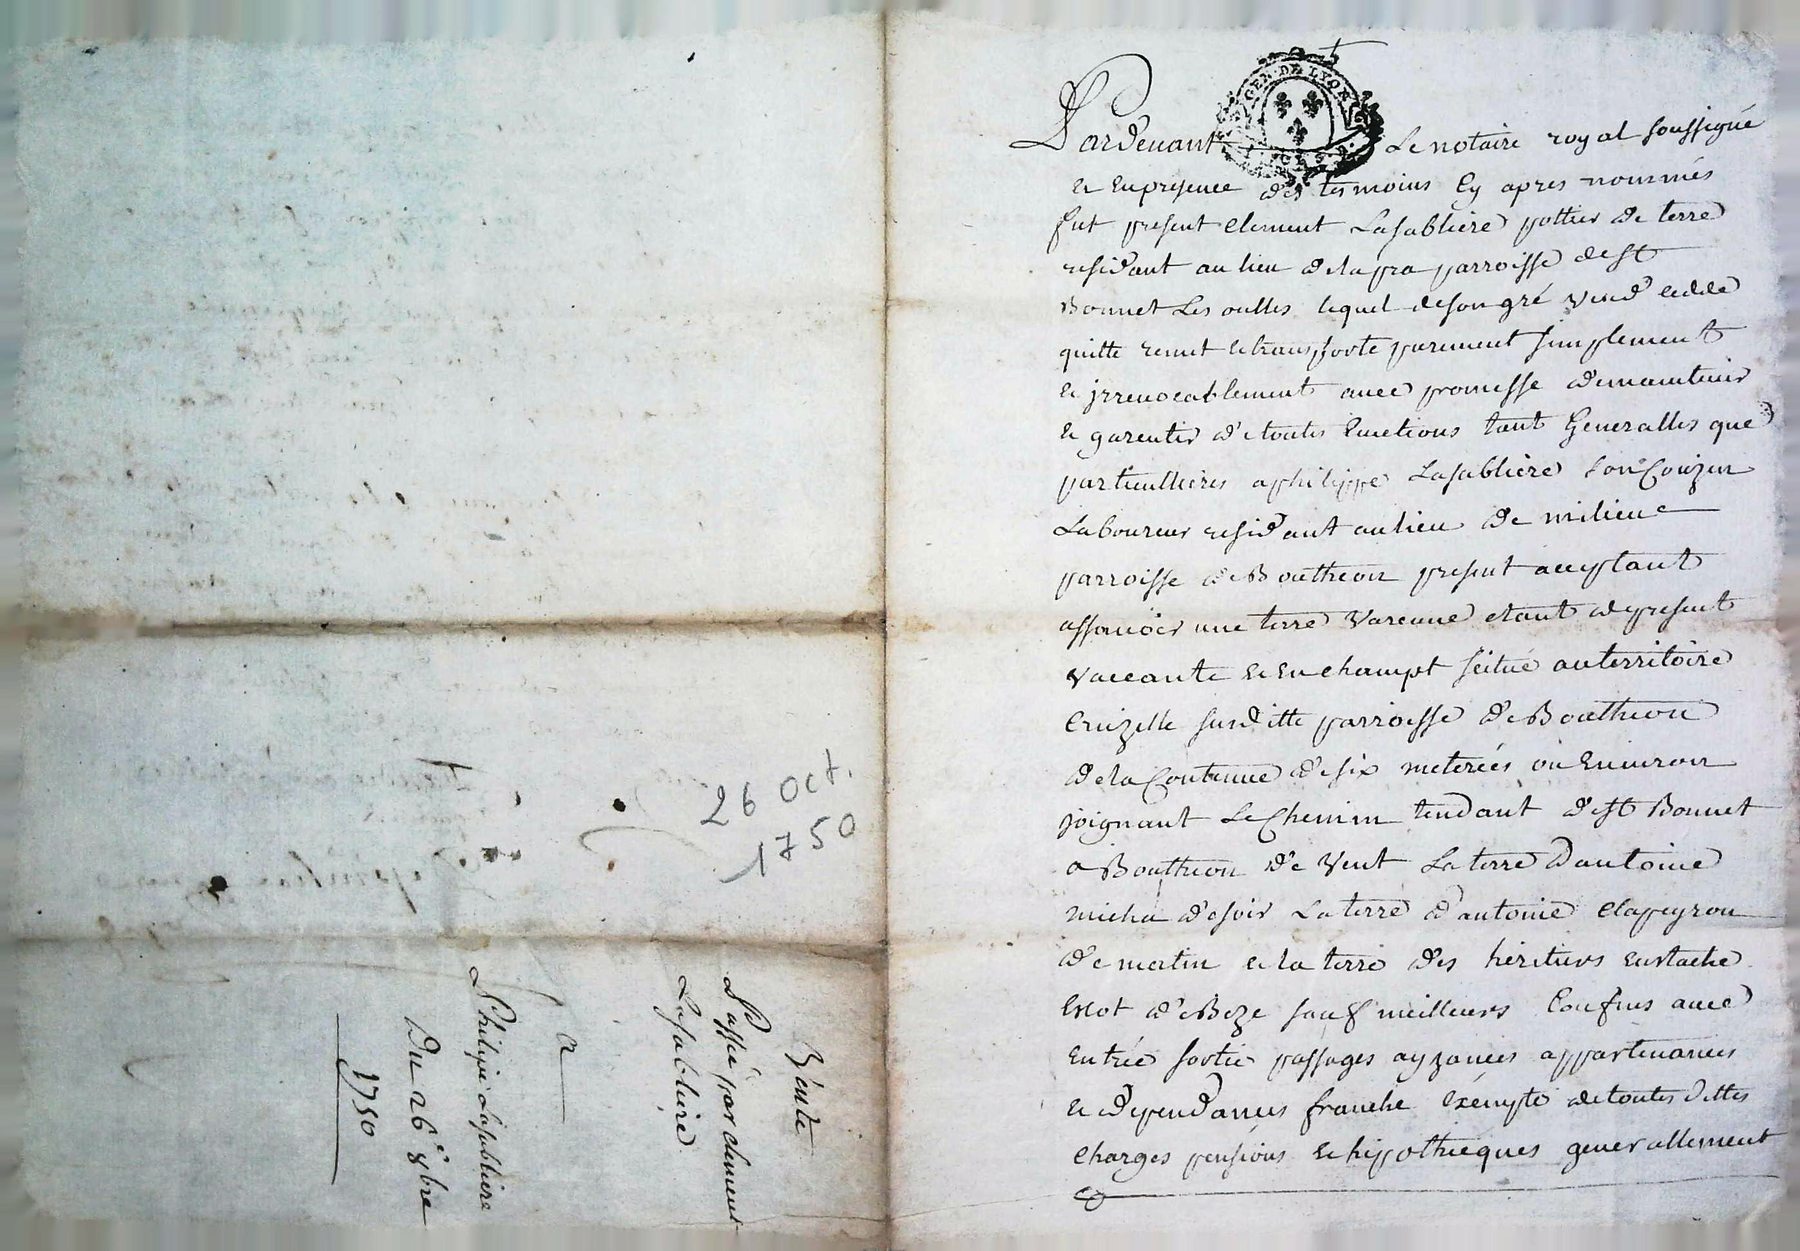 26 oct.
1750
Vente
Passée par clement
Lasabliere
a
Philipe Lasabliere
Du 26e 8bre
1750
GEN. DE LYON
Pardevant Le notaire royal soussigné
et en presence des tesmoins Cy apres nommés
fut present Clement Lasabliere pottier de terre
residant au lieu de la pra parroisse de st
Bonnet Les oulles lequel de son gré Vend cedde
quitte remet et transporte purement simplement
et jrrevocablement avec promesse de maintenir
et garentir de toutes Evictions tant Generalles que
particullieres a philippe Lasabliere son Couzin
Laboureur residant au lieu de milieu
parroisse de Bouthéon present acceptant
assavoir une terre Varenne etant de present
vaccante et en champt scitué au territoire
Cruzille susditte parroisse de Bouthéon
de la Contenue de six meterées ou Environ
joignant Le Chemin tendant de st Bonnet
a Bouthéon de Vent La terre dantoine
micha de soir La terre dantoine Clapeyron
de matin et la terre des héritiers Eustache
de Bize sauf meilleurs Confins avec
Entrée sortie passages ayzances appartenances
et dependances franche Exempte de toutes dettes
charges pensions et hipothèques generallement